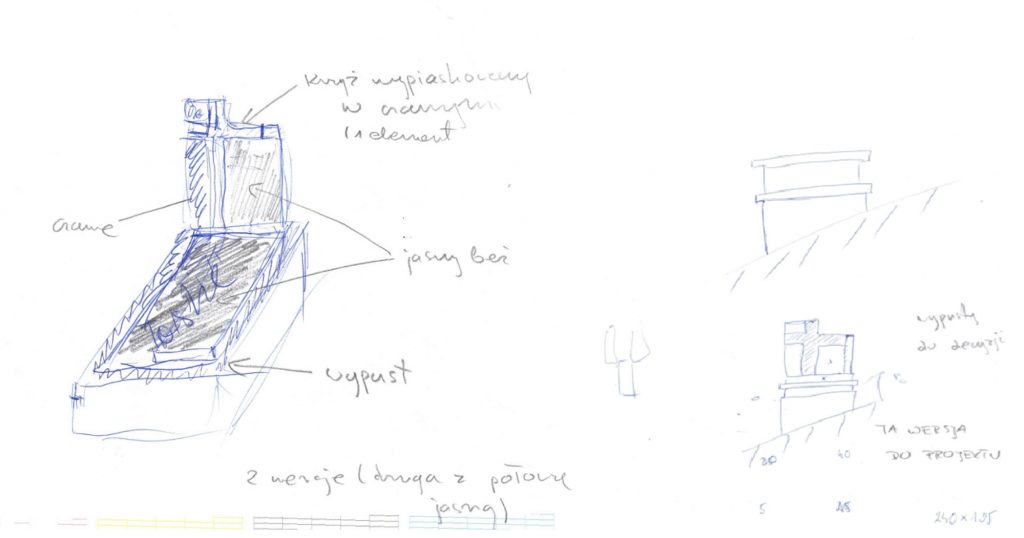 Krzyż wypiaskowany
w czarnym
(1 element
czarne
jasny beż
wypust
2 wersje (druga z połową
jasną)
wypusty
do decyzji
TA WERSJA
DO PROJEKTU
30 40
5
240 × 195